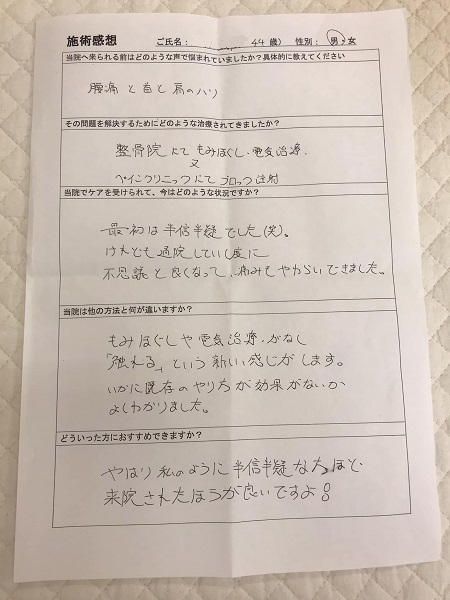 施術感想 ご氏名： 44歳） 性別：男・女
当院へ来られる前はどのような声で悩まれていましたか？具体的に教えてください
腰痛と首と肩のハリ
その問題を解決するためにどのような治療されてきましたか？
整骨院にてもみほぐし・電気治療・
又
ペインクリニックにてブロック注射
当院でケアを受けられて、今はどのような状況ですか？
最初は半信半疑でした(笑)。
けれども通院していく度に
不思議と良くなって、痛みもやわらいできました。
当院は他の方法と何が違いますか？
もみほぐしや電気治療がなし
「触れる」という新しい感じがします。
いかに既存のやり方が効果がないか
よくわかりました。
どういった方におすすめできますか？
やはり私のように半信半疑な方ほど
来院されたほうが良いですよ！